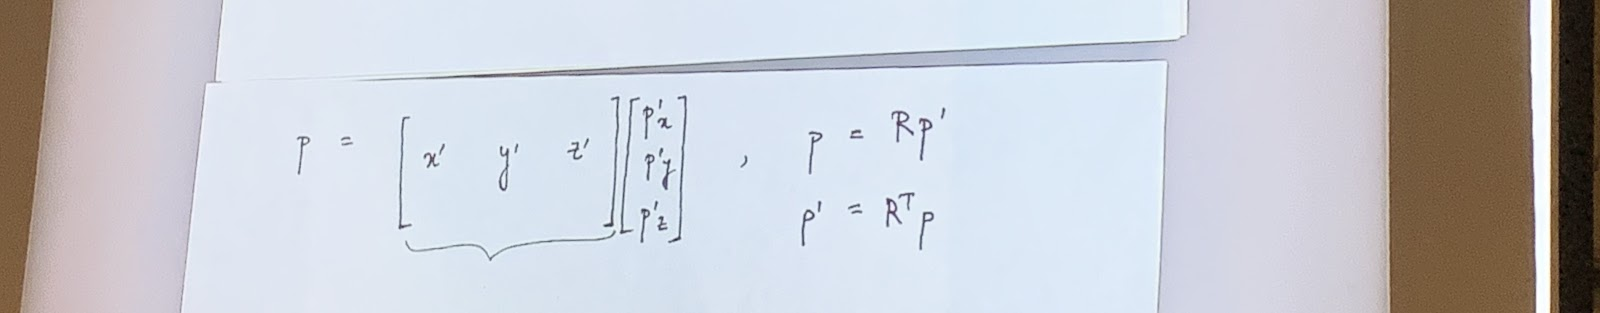 p = [ x' y' z' ] [ p'x p'y p'z ] , p = Rp'
p' = Rᵀp